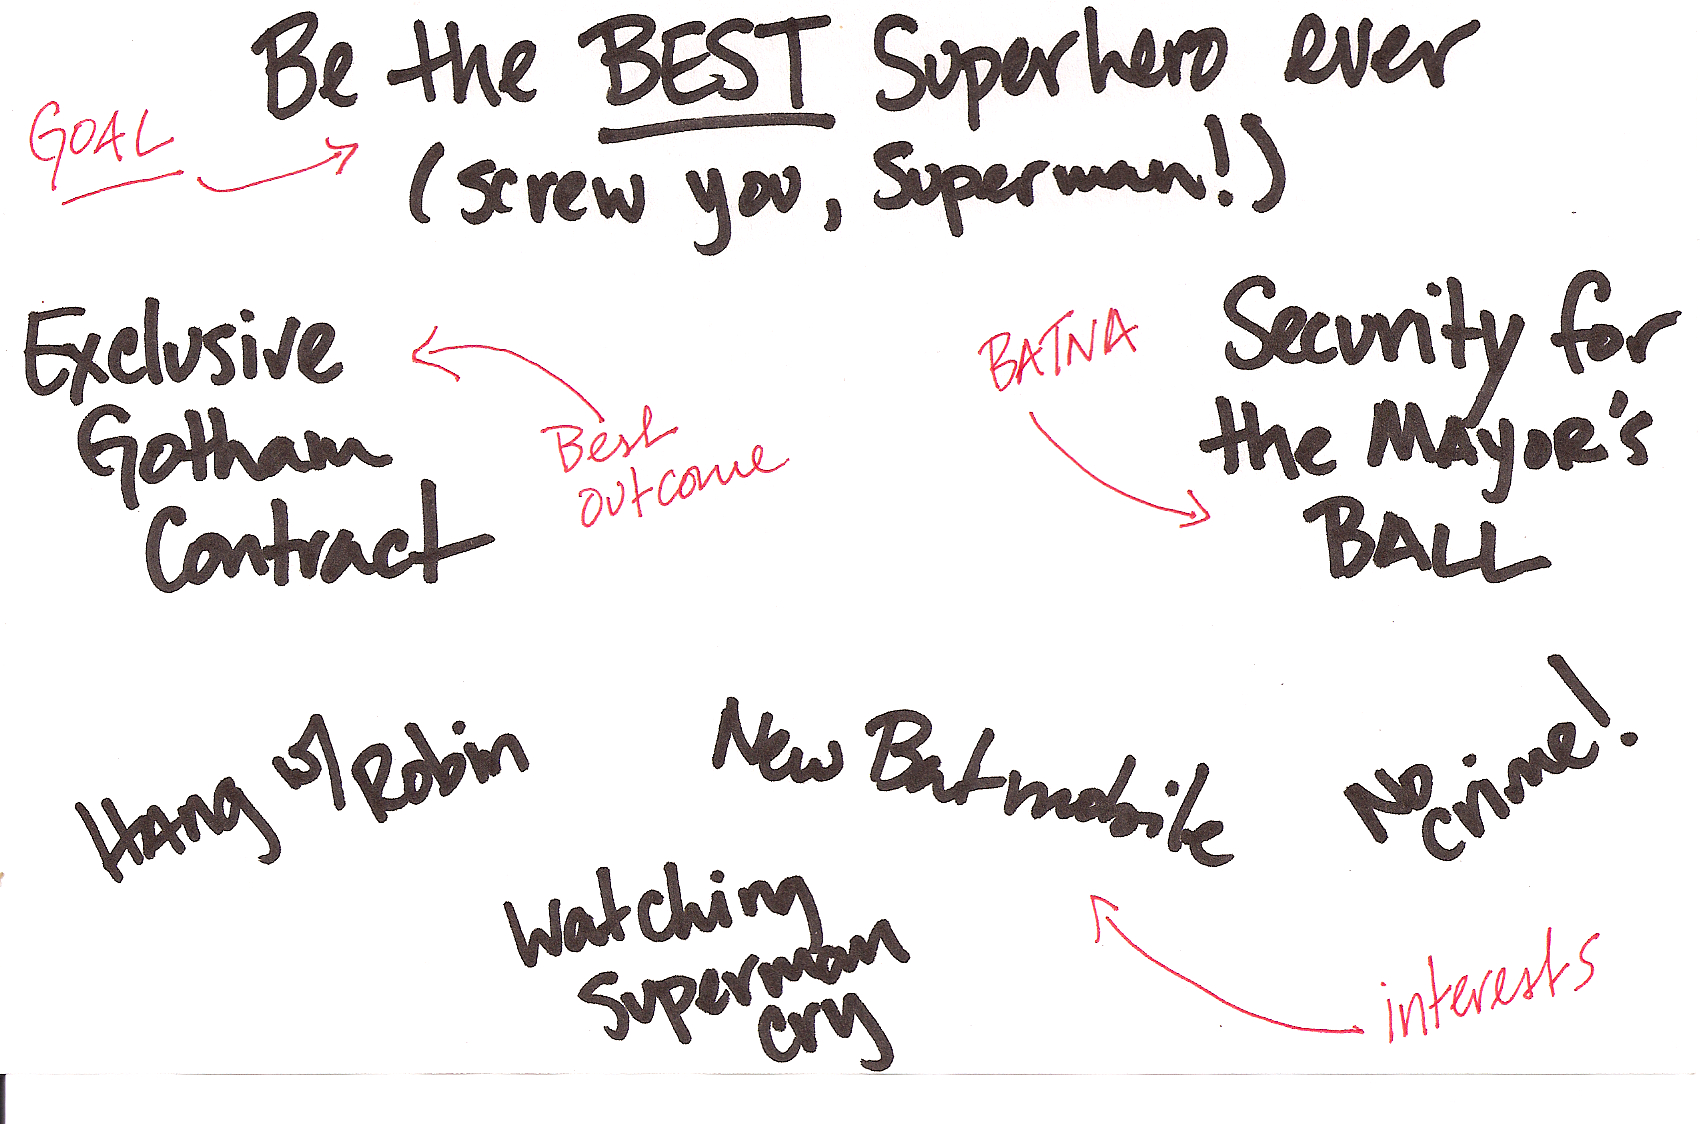 Be the BEST Superhero ever
GOAL
(screw you, Superman!)
Exclusive
Gotham
Contract
Best
outcome
BATNA
Security for
the MAYOR's
BALL
HANg w/ Robin
New Batmobile
No
crime!
Watching
Superman
cry
interests